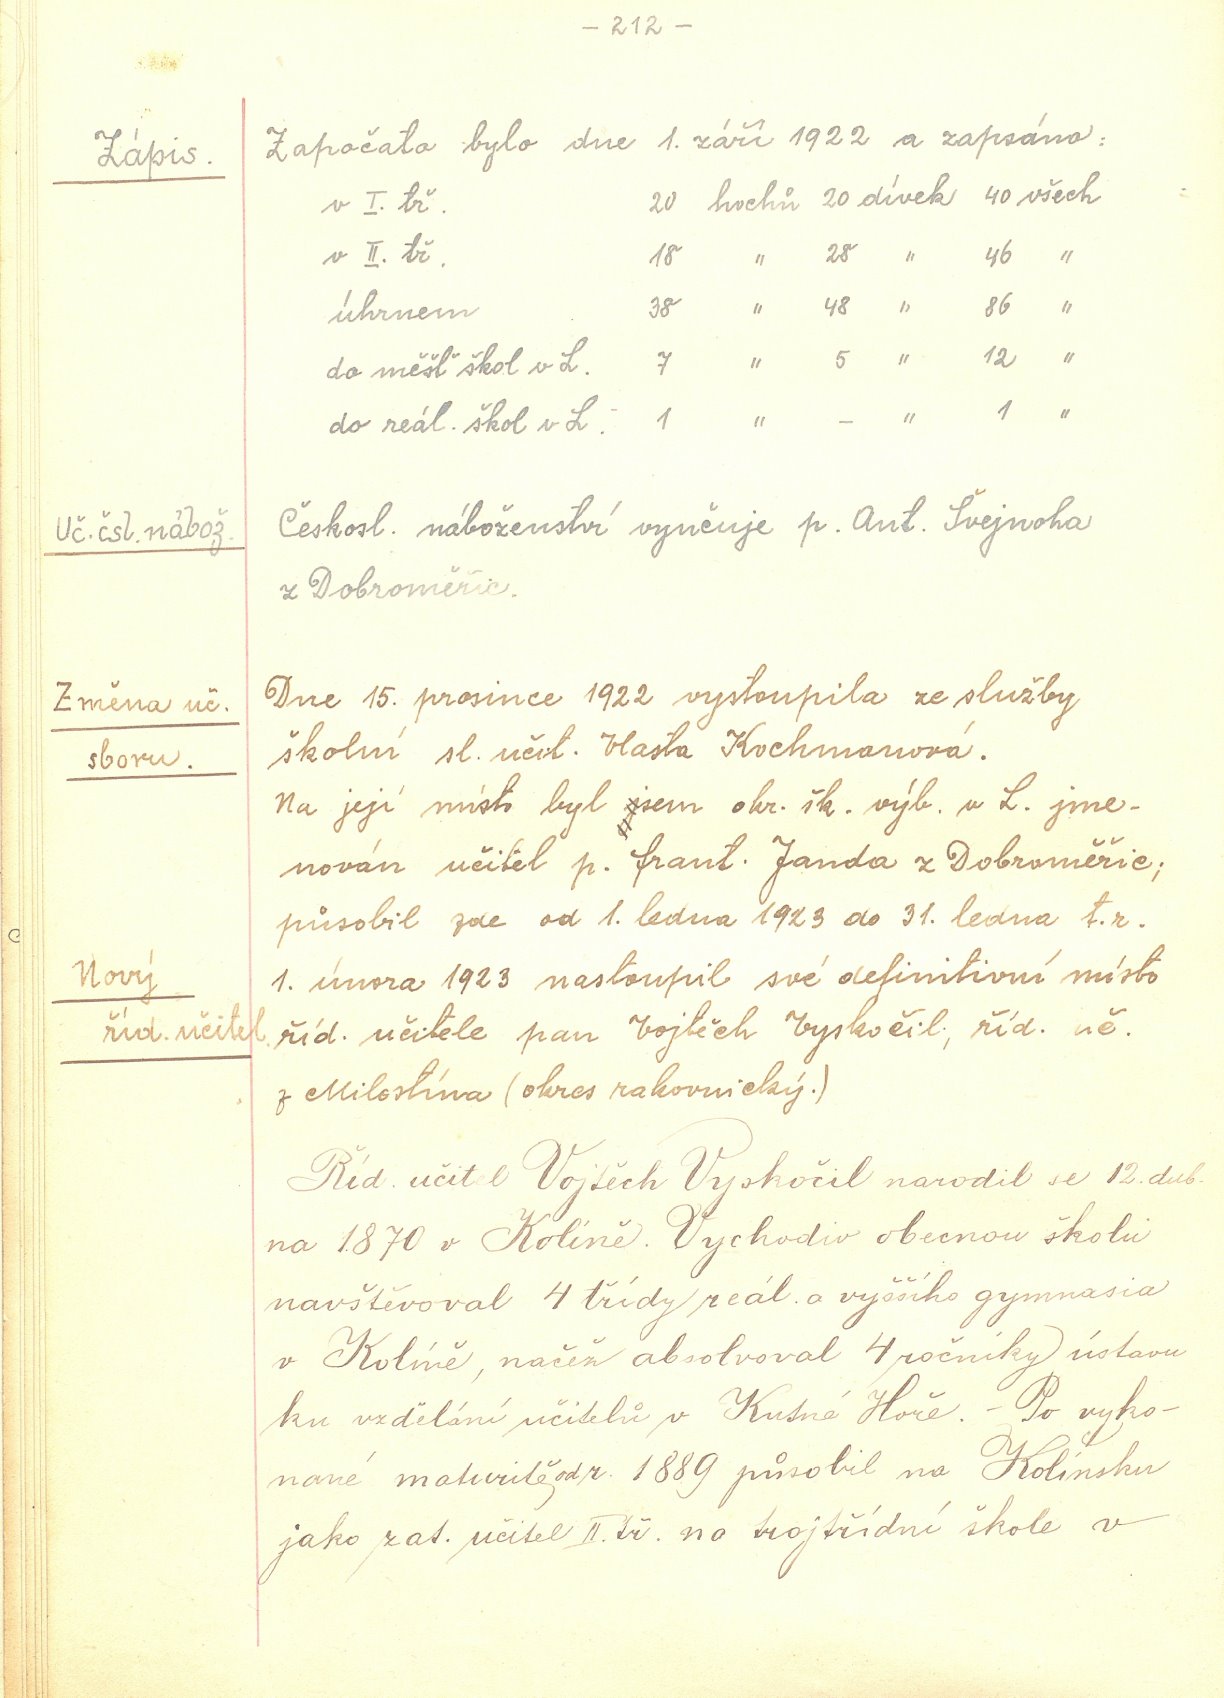 – 212 –
Zápis.
Započato bylo dne 1. září 1922 a zapsáno:
v I. tř. 20 hochů 20 dívek 40 všech
v II. tř. 18 " 28 " 46 "
úhrnem 38 " 48 " 86 "
do měšť škol v L. 7 " 5 " 12 "
do reál. škol v L. 1 " – " 1 "
Uč. čsl. nábož.
Českosl. náboženství vyučuje p. Ant. Švejnoha
z Dobroměřic.
Změna uč.
sboru.
Dne 15. prosince 1922 vystoupila ze služby
školní sl. učit. Vlasta Kochmanová.
Na její místo byl jsem okr. šk. výb. v L. jme-
nován učitel p. Frant. Janda z Dobroměřic;
působil zde od 1. ledna 1923 do 31. ledna t. r.
Nový
říd. učitel.
1. února 1923 nastoupil své definitivní místo
říd. učitele pan Vojtěch Vyskočil, říd. uč.
z Milostína (okres rakovnický.)
Říd. učitel Vojtěch Vyskočil narodil se 12. dub-
na 1870 v Kolíně. Vychodiv obecnou školu
navštěvoval 4 třídy reál. a vyššího gymnasia
v Kolíně, načež absolvoval 4 ročníky ústavu
ku vzdělání učitelů v Kutné Hoře. – Po vyko-
nané maturitě od r. 1889 působil na Kolínsku
jako zat. učitel II. tř. na trojtřídní škole v